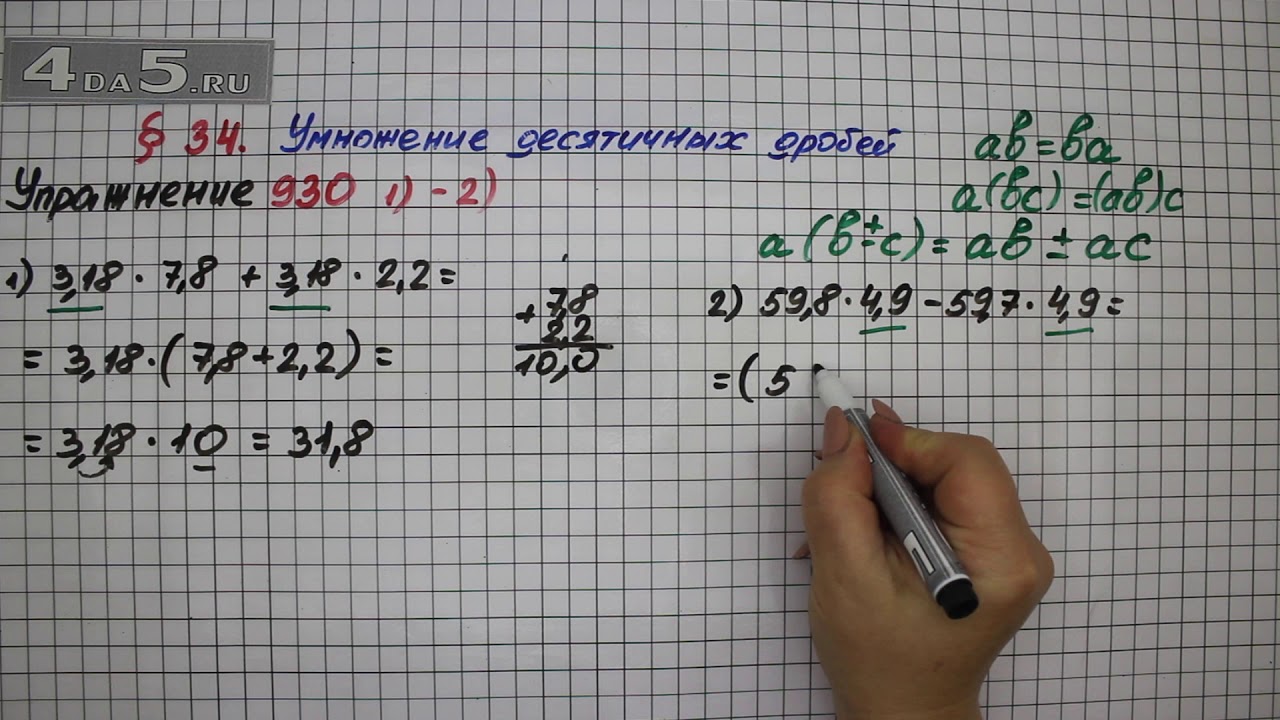 4DA5.RU
§ 34. Умножение десятичных дробей
Упражнение 930 1) - 2)
ab = ba
a(bc) = (ab)c
a(b ± c) = ab ± ac
1) 3,18 · 7,8 + 3,18 · 2,2 =
= 3,18 · (7,8 + 2,2) =
= 3,18 · 10 = 31,8
+ 7,8
2,2
10,0
2) 59,8 · 4,9 - 59,7 · 4,9 =
= ( 5